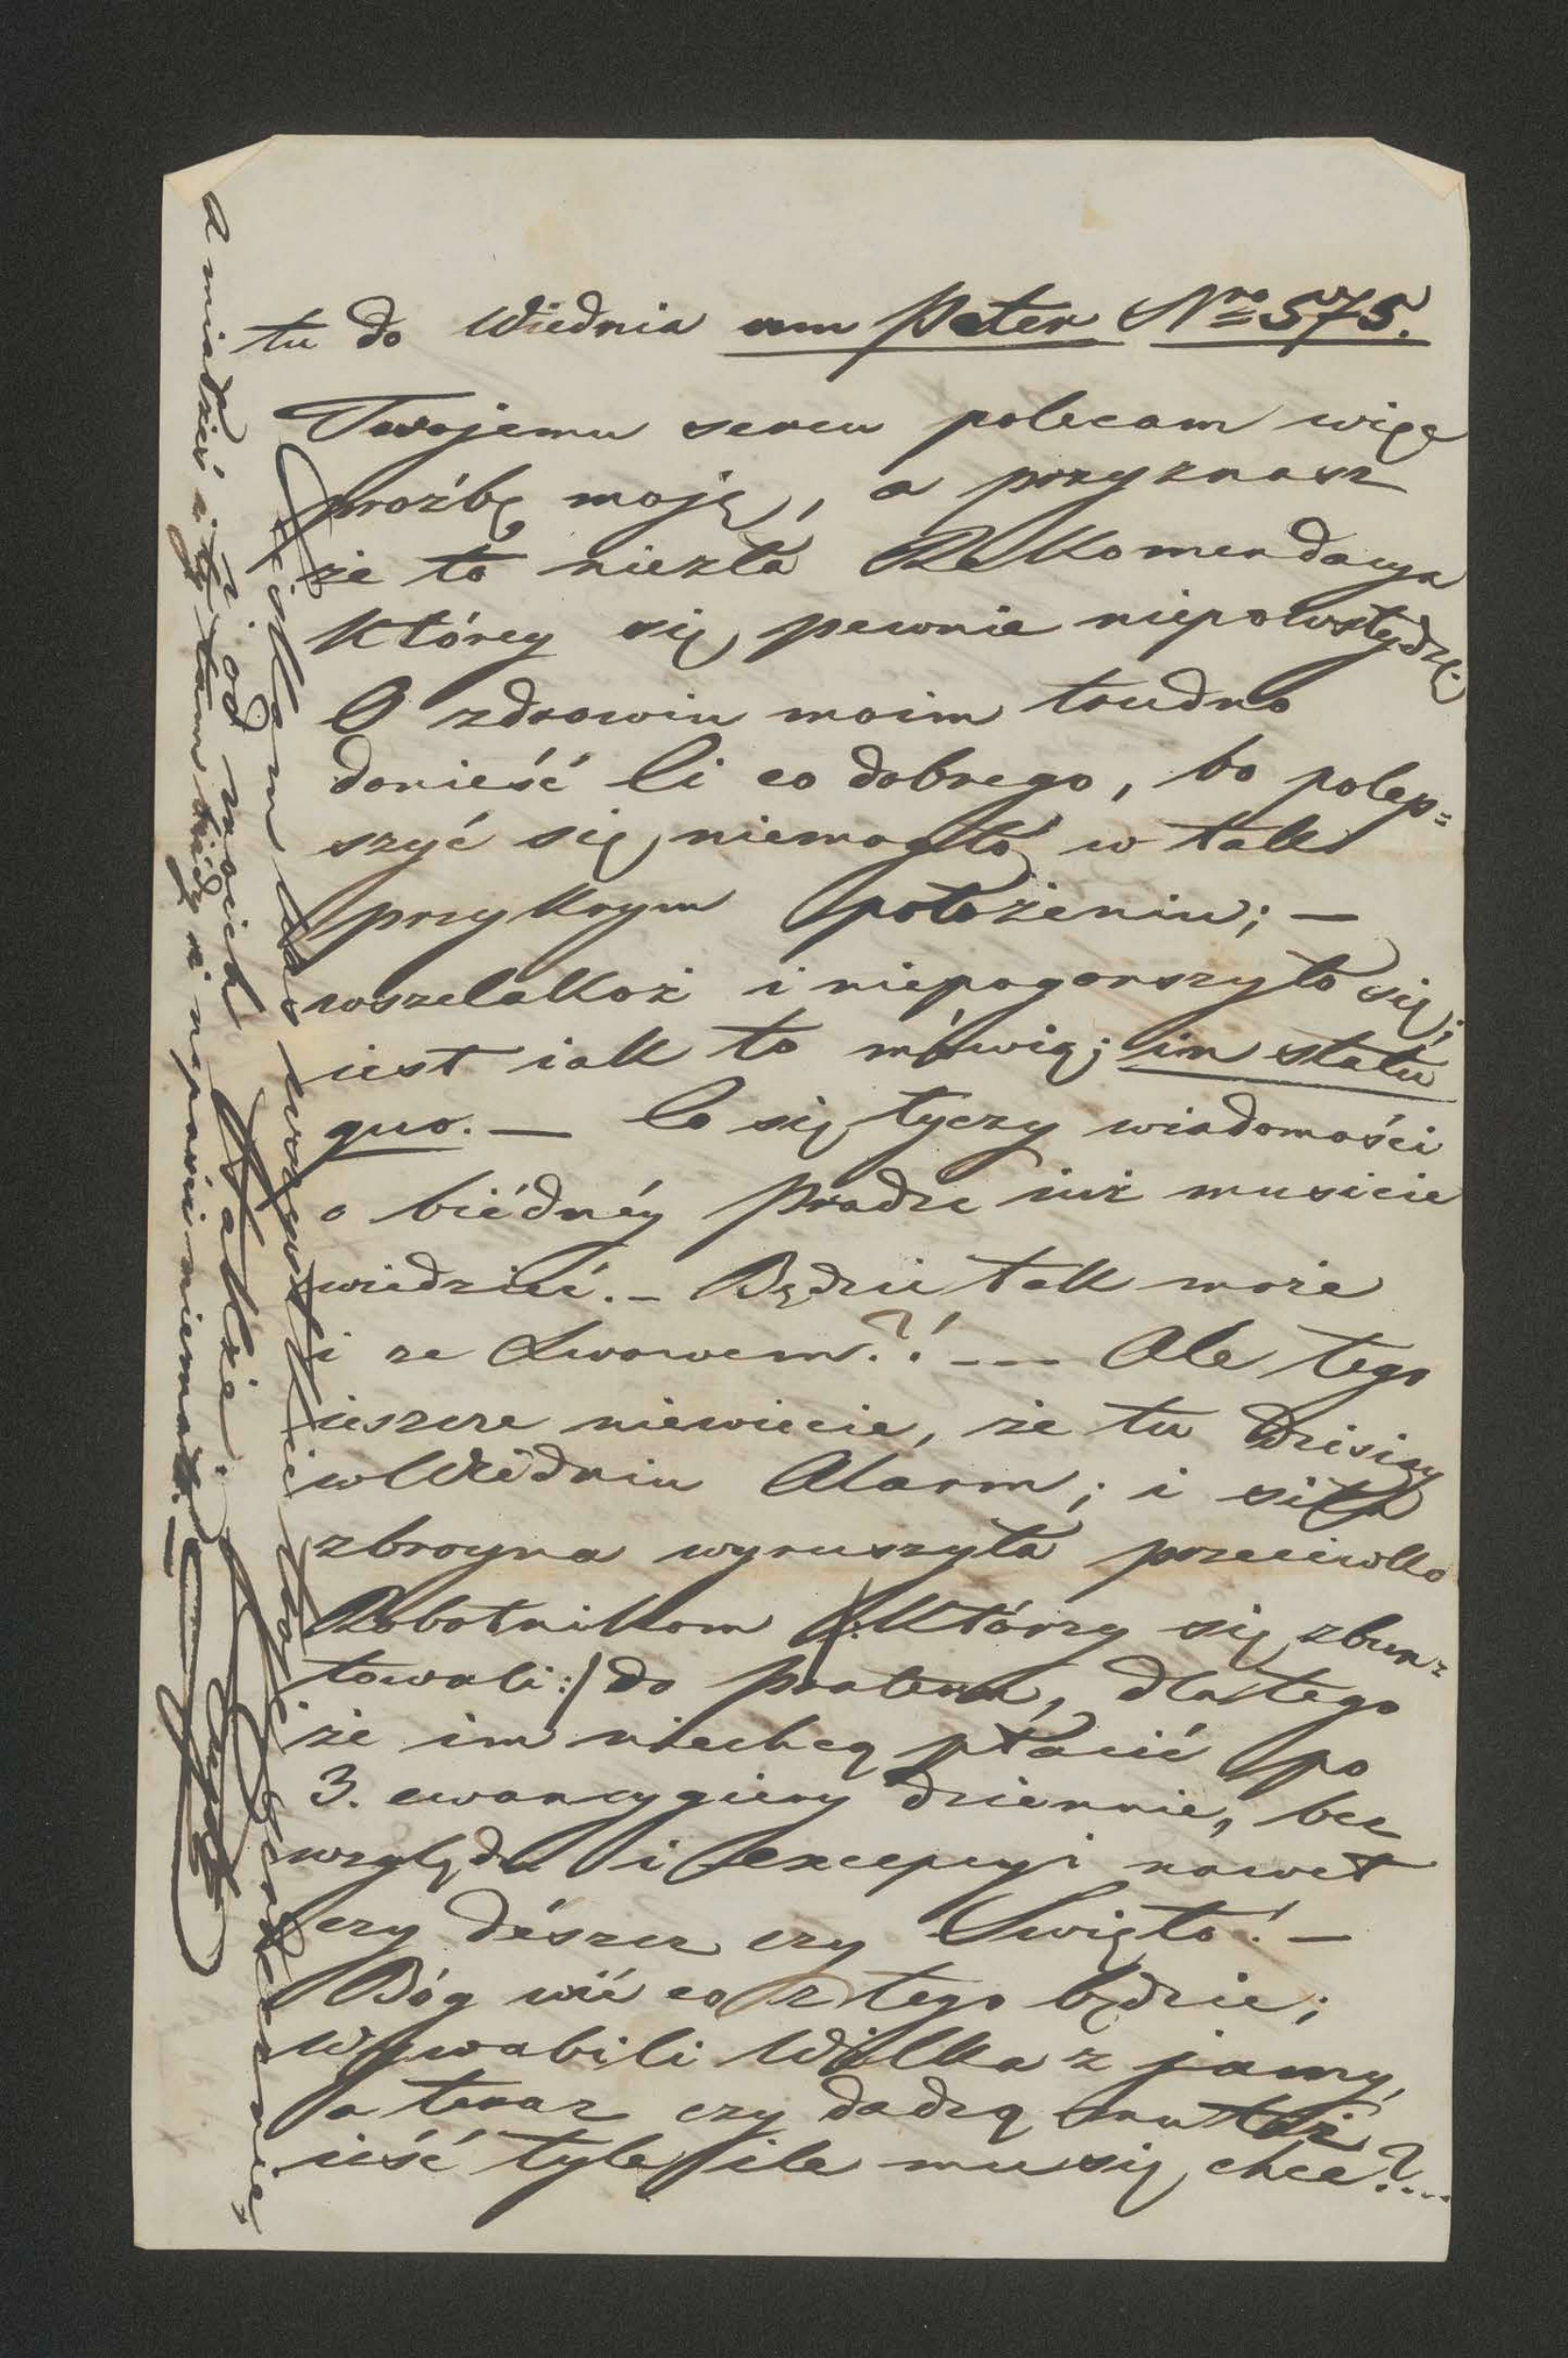 tu do Wiednia am Peter Nro 575.
Twojemu sercu polecam więc
proźbę moję, a przyznasz
że to niezła Rekomendacya
którey się pewnie niepowstydzę.
O zdrowiu moim trudno
donieść Ci co dobrego, bo polep=
szyć się niemogło w tak
przykrym położeniu; —
wszelakoż i niepogorszyło się;
iest iak to mówią; in statu
quo. — Co się tyczy wiadomości
o biédnéy Pradze iuż musicie
wiedzieć. — Będzie tak może
i ze Lwowem?! — — Ale tego
ieszcze niewiecie, że tu dzisiay
w Wiédniu Alarm; i siła
zbroyna wyruszyła przeciwko
Robotnikom /: którzy się zbun=
towali :/ do prateru, dla tego
że im niechcą płacić po
3. cwancygiery dziennie, bez
względu i excepcyi nawet
czy dészcz czy Swięto! —
Bóg wié co z tego będzie;
wywabili Wilka z jamy,
a teraz czy dadzą mu też
ieść tyle ile mu się chce?...
Sciskam Was wszystkich
i od moich także
a miałżeś i ty tam biédy i napaści niemało. —